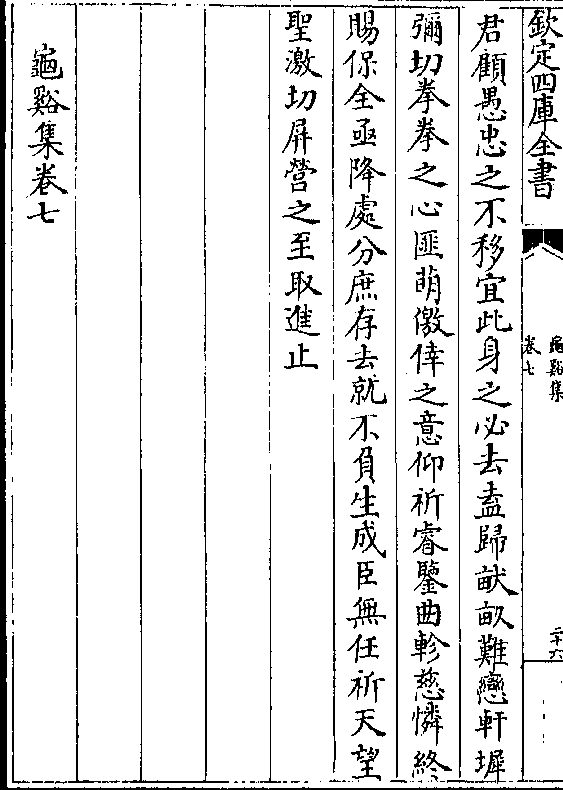 欽定四庫全書
龜谿集
卷七
二十六
君顧愚忠之不移宜此身之必去盍歸畎畝難戀軒墀
彌切拳拳之心匪萌儌倖之意仰祈睿鑒曲軫慈憐終
賜保全亟降處分庶存去就不負生成臣無任祈天望
聖激切屏營之至取進止
龜谿集卷七